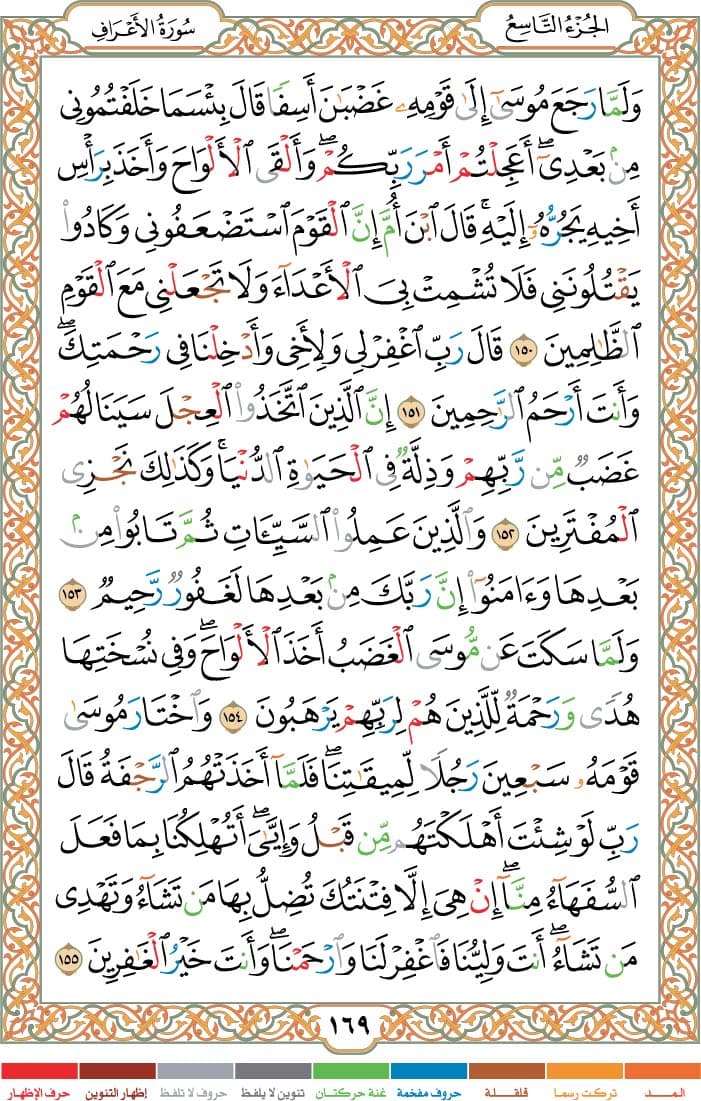 الجُزْءُ التَّاسِعُ
سُورَةُ الأَعْرَافِ
وَلَمَّا رَجَعَ مُوسَىٰٓ إِلَىٰ قَوْمِهِۦ غَضْبَٰنَ أَسِفًا قَالَ بِئْسَمَا خَلَفْتُمُونِى
مِنۢ بَعْدِىٓ ۖ أَعَجِلْتُمْ أَمْرَ رَبِّكُمْ ۖ وَأَلْقَى ٱلْأَلْوَاحَ وَأَخَذَ بِرَأْسِ
أَخِيهِ يَجُرُّهُۥٓ إِلَيْهِ ۚ قَالَ ٱبْنَ أُمَّ إِنَّ ٱلْقَوْمَ ٱسْتَضْعَفُونِى وَكَادُوا۟
يَقْتُلُونَنِى فَلَا تُشْمِتْ بِىَ ٱلْأَعْدَآءَ وَلَا تَجْعَلْنِى مَعَ ٱلْقَوْمِ
ٱلظَّٰلِمِينَ ١٥٠ قَالَ رَبِّ ٱغْفِرْ لِى وَلِأَخِى وَأَدْخِلْنَا فِى رَحْمَتِكَ ۖ
وَأَنتَ أَرْحَمُ ٱلرَّٰحِمِينَ ١٥١ إِنَّ ٱلَّذِينَ ٱتَّخَذُوا۟ ٱلْعِجْلَ سَيَنَالُهُمْ
غَضَبٌ مِّن رَّبِّهِمْ وَذِلَّةٌ فِى ٱلْحَيَوٰةِ ٱلدُّنْيَا ۚ وَكَذَٰلِكَ نَجْزِى
ٱلْمُفْتَرِينَ ١٥٢ وَٱلَّذِينَ عَمِلُوا۟ ٱلسَّيِّـَٔاتِ ثُمَّ تَابُوا۟ مِنۢ
بَعْدِهَا وَءَامَنُوٓا۟ إِنَّ رَبَّكَ مِنۢ بَعْدِهَا لَغَفُورٌ رَّحِيمٌ ١٥٣
وَلَمَّا سَكَتَ عَن مُّوسَى ٱلْغَضَبُ أَخَذَ ٱلْأَلْوَاحَ ۖ وَفِى نُسْخَتِهَا
هُدًى وَرَحْمَةٌ لِّلَّذِينَ هُمْ لِرَبِّهِمْ يَرْهَبُونَ ١٥٤ وَٱخْتَارَ مُوسَىٰ
قَوْمَهُۥ سَبْعِينَ رَجُلًا لِّمِيقَٰتِنَا ۖ فَلَمَّآ أَخَذَتْهُمُ ٱلرَّجْفَةُ قَالَ
رَبِّ لَوْ شِئْتَ أَهْلَكْتَهُم مِّن قَبْلُ وَإِيَّٰىَ ۖ أَتُهْلِكُنَا بِمَا فَعَلَ
ٱلسُّفَهَآءُ مِنَّآ ۖ إِنْ هِىَ إِلَّا فِتْنَتُكَ تُضِلُّ بِهَا مَن تَشَآءُ وَتَهْدِى
مَن تَشَآءُ ۖ أَنتَ وَلِيُّنَا فَٱغْفِرْ لَنَا وَٱرْحَمْنَا ۖ وَأَنتَ خَيْرُ ٱلْغَٰفِرِينَ ١٥٥
١٦٩
المــد تركت رسما قلقلة حروف مفخمة غنة حركتان تنوين لا يلفظ حروف لا تلفظ إظهار التنوين حرف الإظهار